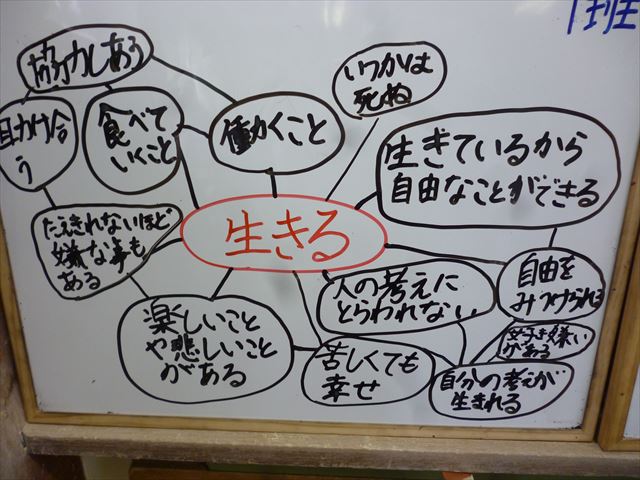 1班
協力しあう
助け合
う
食べて
いくこと
働くこと
いつかは
死ぬ
生きているから
自由なことができる
たえきれないほど
嫌な事も
ある
生きる
人の考えに
とらわれない
自由を
みつけられる
楽しいこと
や悲しいこと
がある
苦しくても
幸せ
好き嫌い
がある
自分の考えが
生まれる